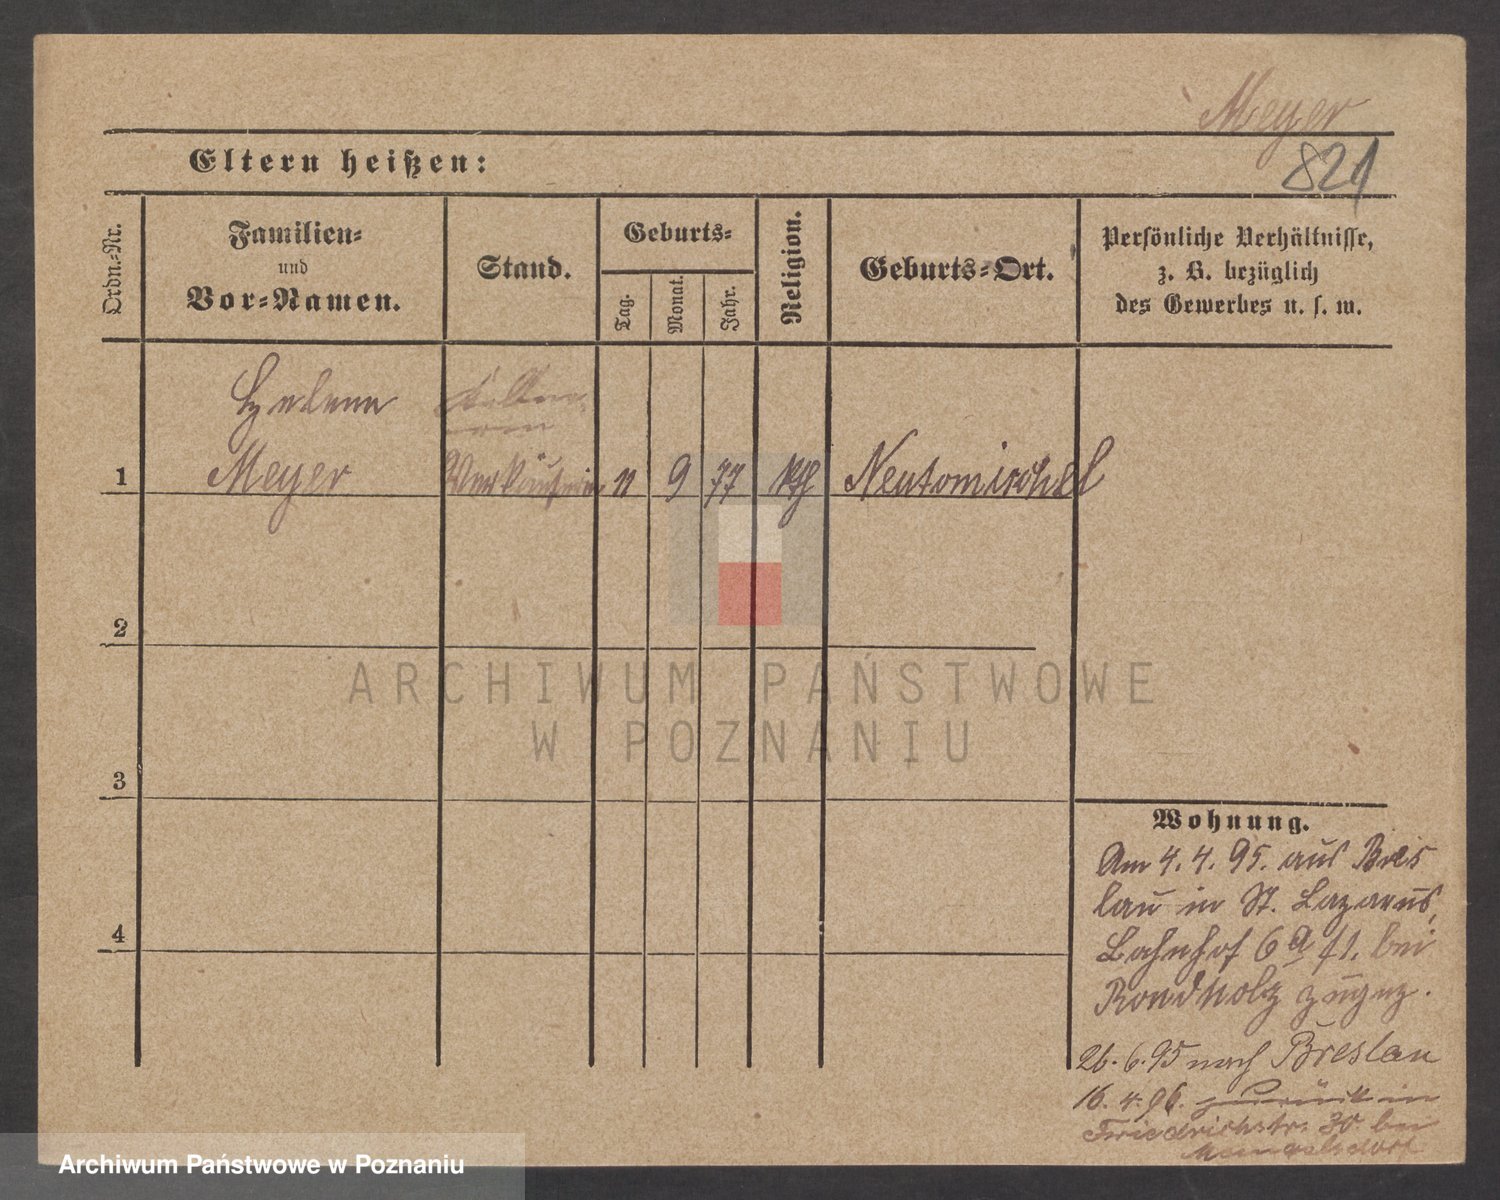 Meyer
Eltern heißen:
821
Ordn.-Nr.
Familien-
und
Vor-Namen.
Stand.
Geburts-
Tag.
Monat.
Jahr.
Religion.
Geburts-Ort.
Persönliche Verhältnisse,
z. B. bezüglich
des Gewerbes u. s. w.
Helene
Meyer
Verkäuferin
1
11
9
77
kth
Neutomischel
2
ARCHIWUM PAŃSTWOWE
W POZNANIU
3
4
Wohnung.
Am 4.4.95. aus Bres
lau in St. Lazarus,
Bahnhof 6a f1. bei
Rondholz zugez.
26.6.95 nach Breslau
16.4.96. zurück in
Friedrichstr. 30 bei
Archiwum Państwowe w Poznaniu